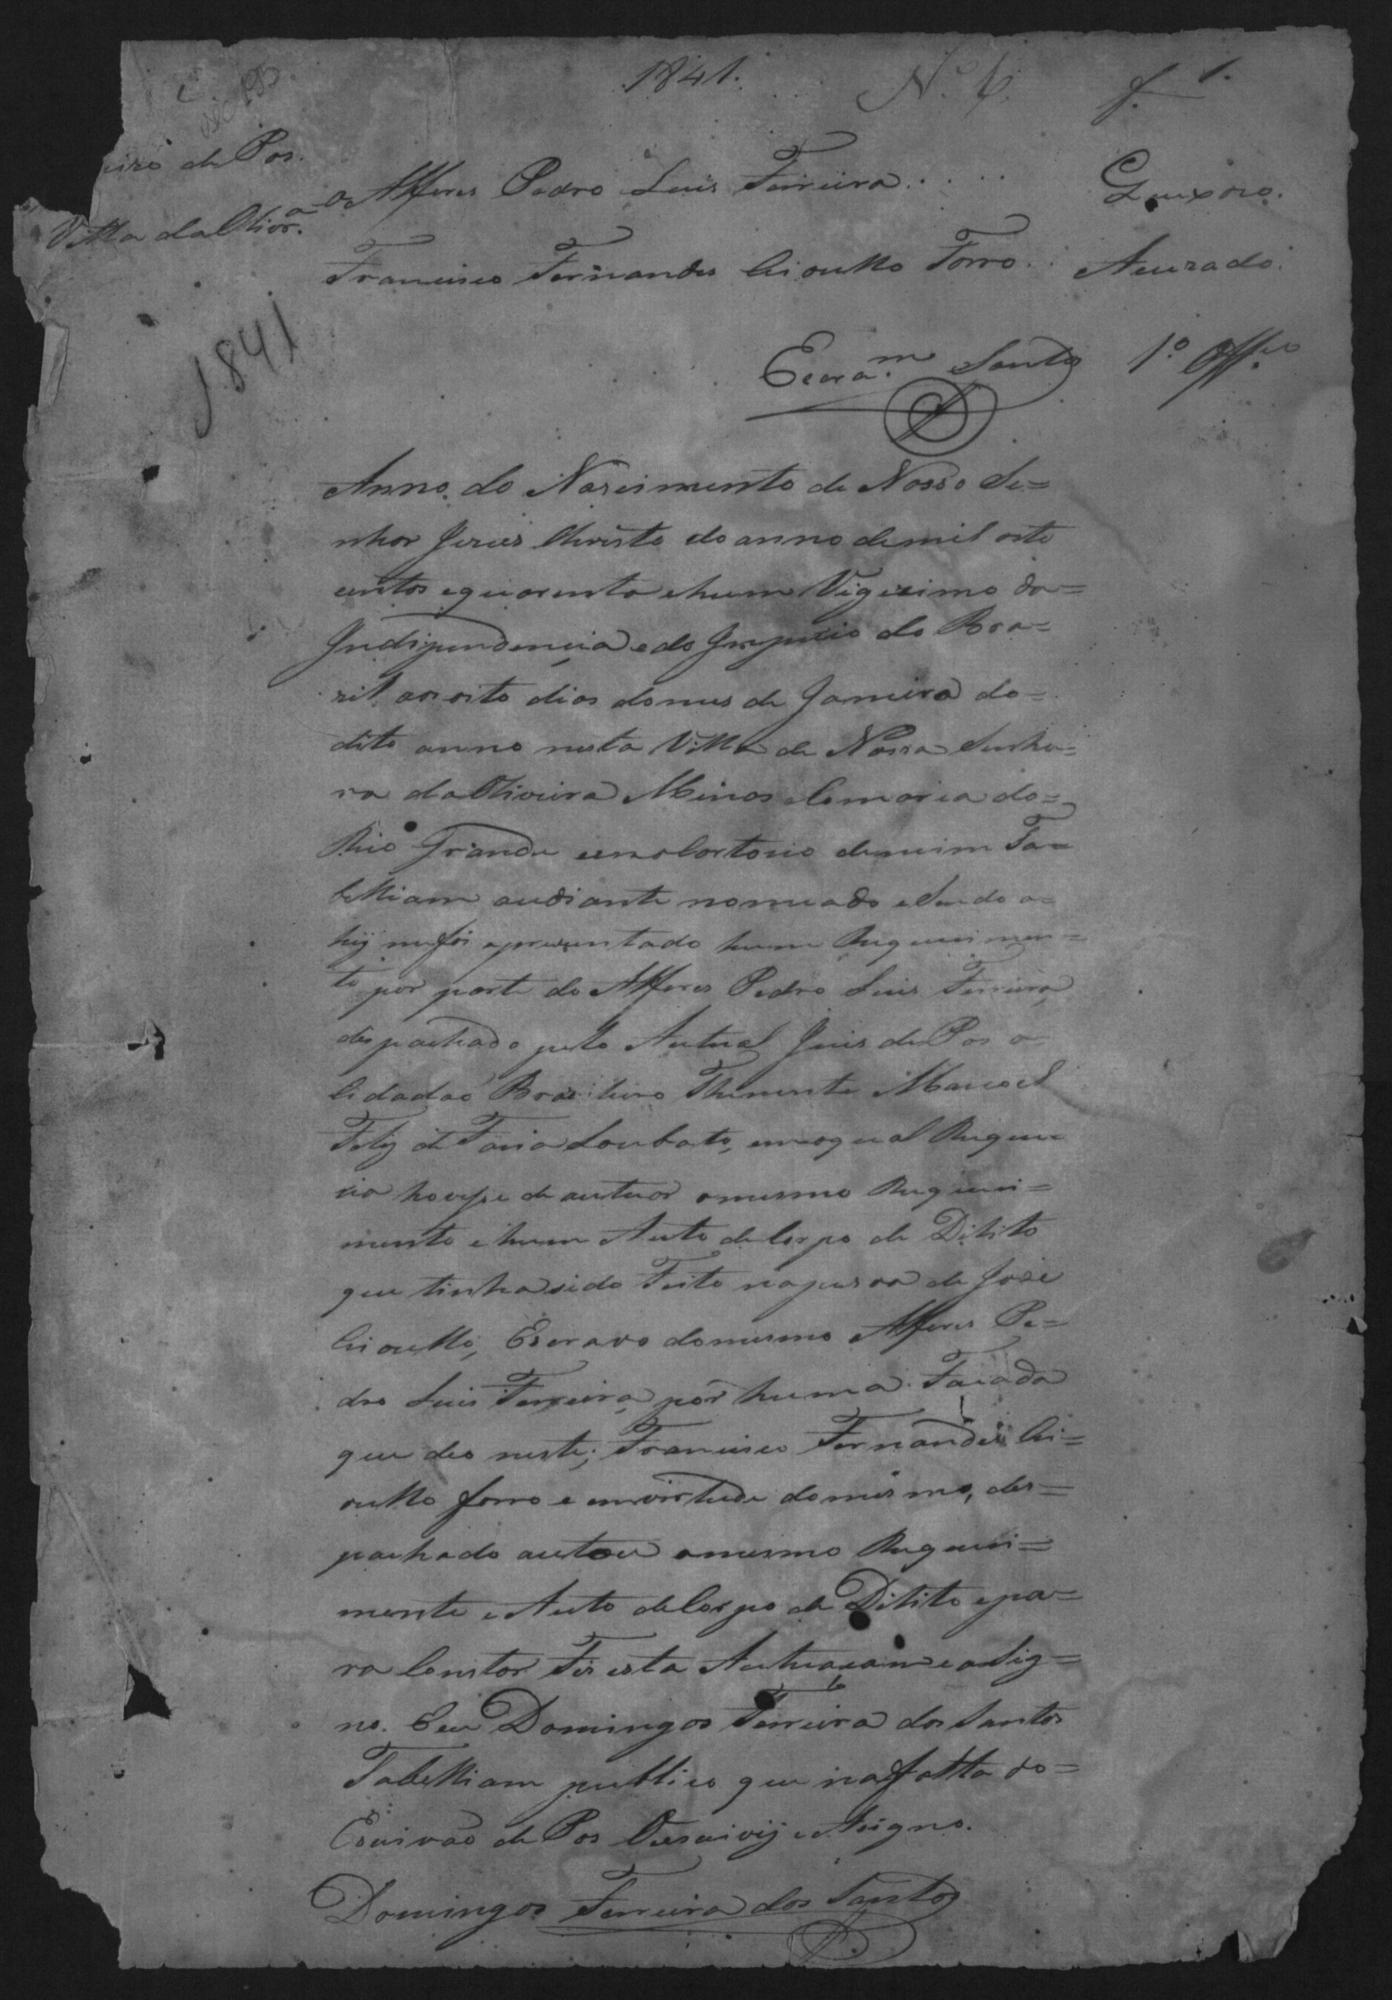 1841. N.º 6. f. 1.
de Pas.
Villa da Olivr.ª
O Alferes Pedro Luis Ferreira. Queixoso.
Francisco Fernandes Crioullo Forro. Acuzado.
1841
Escr.am Santos 1.º Off.co
Anno do Nascimento de Nosso Se=
nhor Jesus Christo do anno de mil oito
centos e quarenta e hum Vigezimo da=
Independencia e do Imperio do Bra=
zil aos oito dias do mes de Janeiro do=
dito anno nesta Villa de Nossa Senho=
ra da Oliveira Minas e Comarca do=
Rio Grande em o Cartorio de mim Ta=
belliam audiante nomeado e Sendo a=
hij me foi aprezentado hum Requerimen=
to por parte do Alferes Pedro Luis Ferreira
despachado pello Autual Juis de Pas o
Cidadão Brasileiro Thenente Manoel
Feliz de Faria Loubato, em o qual Reque
ria houvese de autuar o mesmo Requeri=
mento e hum Auto de Corpo de Dilito
que tinha sido Feito na pesoa de Joze
Crioullo, Escravo do mesmo Alferes Pe=
dro Luis Ferreira, por huma Facada
que deo neste; Francisco Fernandes Cri=
oullo forro e em virtude do mesmo, des=
pachado autou o mesmo Requeri=
mento e Auto de Corpo de Dilito e pa=
ra Constar Fis esta Autuaçam e asig=
no. Eeu Domingos Ferreira dos Santos
Tabelliam publico que na falta do=
Escrivão de Pas Oescrivij e Asigno.
Domingos Ferreira dos Santos